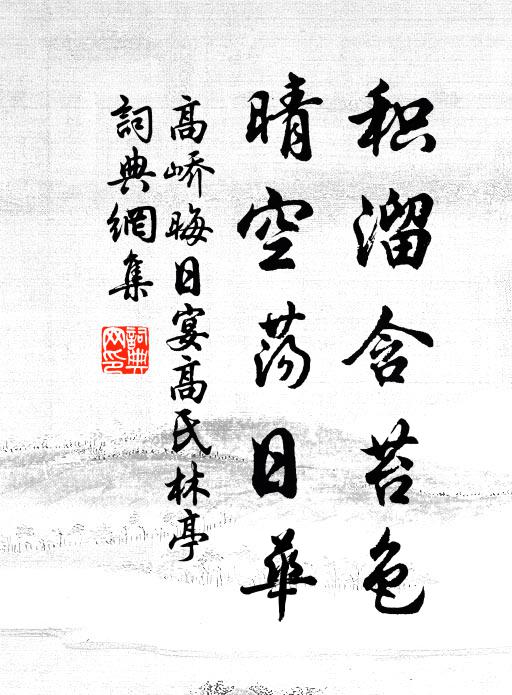 积溜含苔色
晴空荡日華
高峤晦日宴高氏林亭
詞典網集
詞典
网印